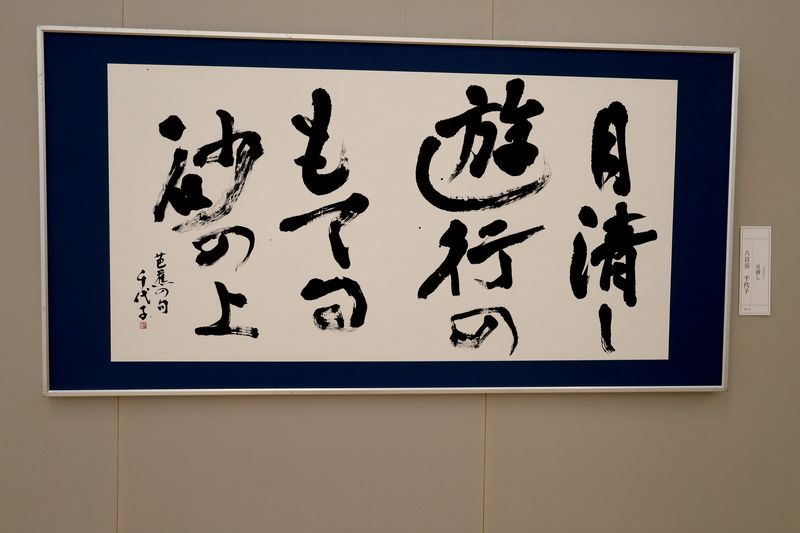 月清し
遊行の
もてる
砂の上
芭蕉の句
千代子
月清し
八百谷 千代子